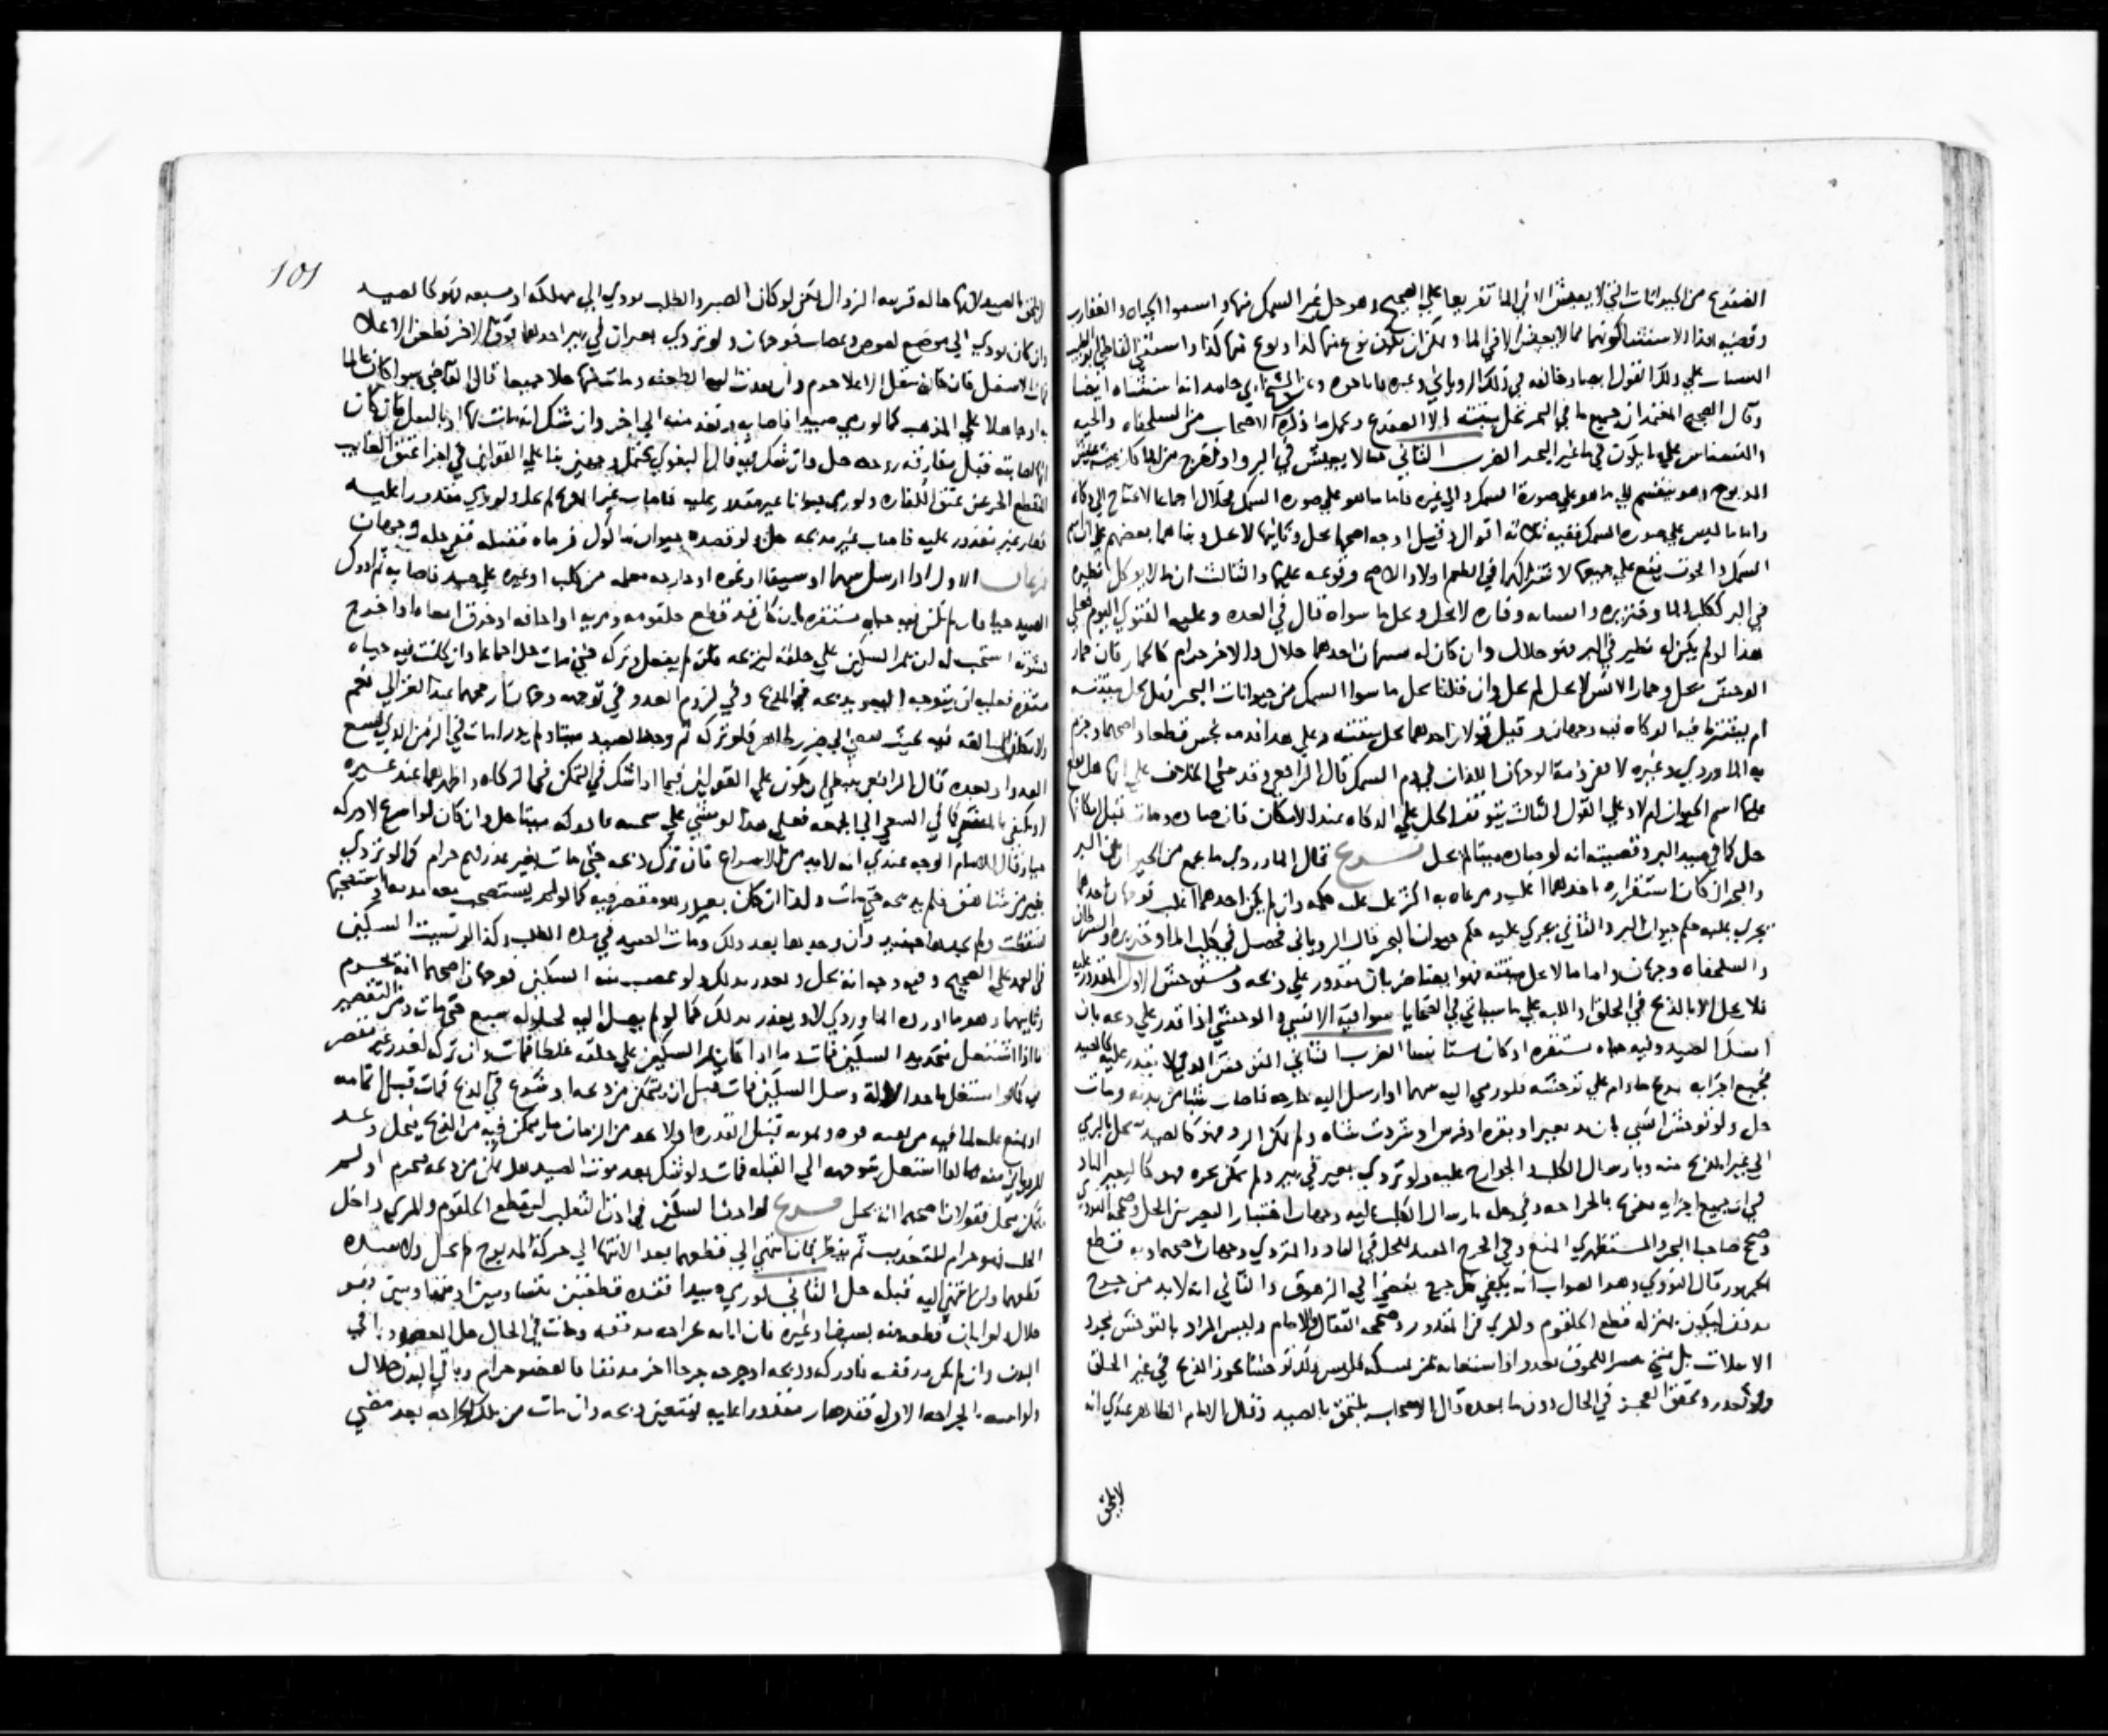 الضفدع من الحيوانات التي لا يعيش الا في الما تفريعا علي الصحيح وهو حل غير السمك منها واستثنوا الحيات والعقارب
وقضيه هذا الاستثنا كونهما مما لا يعيش الا في الما ويمكن ان يكون نوع منها كذا ونوع منها كذا واستثني القاضي ابو الطيب
النسناس علي ذلك القول ايضا وخالفه في ذلك الروياني وغيره فاباحوه وعن الشيخ ابي حامد انه استثناه ايضا
وقال الصحيح المعتمد ان جميع ما في البحر تحل ميتته الا الضفدع ويحمل ما ذكره الاصحاب من السلحفاه والحيه
والنسناس علي ما يكون في ما غير البحر الضرب الثاني ما لا يعيش في البر واذا خرج من الما كان عيشه عيش
المذبوح وهو ينقسم الي ما هو علي صورة السمك والي غيره فاما ما هو علي صوره السمك فحلال اجماعا لا يحتاج الي ذكاه
واما ما ليس علي صوره السمك ففيه ثلاثة اقوال وقيل اوجه اصحها يحل وثانيها لا يحل وبناهما بعضهم علي ان اسم
السمك والحوت يقع علي جميعها لاشتراكها في الطعم اولا والاصح وقوعه عليها والثالث ان ما لا يوكل نظيره
في البر ككلب الما وخنزيره وانسانه وفاره لا يحل ويحل ما سواه قال في العده وعليه الفتوي اليوم فعلي
هذا لو لم يكن له نظير في البر فهو حلال وان كان له سميان احدهما حلال والاخر حرام كالحمار فان حمار
الوحش يحل وحمار الانس لا يحل لم يحل وان قلنا يحل ما سوا السمك من حيوانات البحر فهل تحل ميتته
ام يشترط فيه الذكاه فيه وجهان وقيل قولان احدهما تحل ميتته وعلي هذا فدمه نجس قطعا واصحهما وجزم
به الماوردي وغيره لا يفتقر الوجهان اللذان في دم السمك قال الرافعي وقد حكي الخلاف علي انها هل يقع
عليها اسم الحيوان ام لا وعلي القول الثالث يتوقف الحل علي الذكاه عند الامكان فان صاده ومات قبل امكانها
حل كما في صيد البر وقضيته انه لو صاده ميتا لم يحل فرع قال الماوردي ما يجمع من الحيوان بين البر
والبحر ان كان استقراره باحدهما اغلب ومرعاه به اكثر غلب عليه حكمه وان لم يكن احدهما اغلب فوجهان احدهما
يجري عليه حكم حيوان البر والثاني يجري عليه حكم حيوان البحر قال الروياني فحصل في كلب الما وخنزيره والسرطان
والسلحفاه وجهان واما ما لا تحل ميتته فهو ايضا ضربان مقدور علي ذبحه ومتوحش الاول المقدور عليه
فلا يحل الا بالذبح في الحلق واللبه علي ما سياتي في الضحايا سوا فيه الانسي والوحشي اذا قدر علي ذبحه بان
امسك الصيد وفيه حياه مستقره او كان مستانسا الضرب الثاني المتوحش الذي لا يقدر عليه كالصيد
فجميع اجزايه مذبح ما دام علي توحشه فلو رمي اليه سهما او ارسل اليه جارحه فاصاب شيا من بدنه ومات
حل ولو توحش انسي بان ند بعير او بقره او فرس او شردت شاه ولم يمكن الرد فهو كالصيد يحل بالرمي
الي غير المذبح منه وبارسال الكلب والجوارح عليه ولو تردي بعير في بير ولم يمكن نحره فهو كالبعير الناد
في ان جميع اجزايه مذبح بالجراحه وفي حله بارسال الكلب عليه وجهان اختيار البصريين الحل وصحح النووي
وصحح صاحبا البحر والمستظهري المنع وفي الجرح المفيد للحل في الناد والمتردي وجهان اصحهما وبه قطع
الجمهور قال النووي وهو الصواب انه يكفي كل جرح يفضي الي الزهوق والثاني انه لا بد من جرح
مذفف ليكون بمنزله قطع الحلقوم والمري في المقدور وصححه القفال والامام وليس المراد بالتوحش مجرد
الافلات بل متي تيسر اللحوق بعدو او استعانه بمن يمسكه فليس ذلك توحشا يجوز الذبح في غير الحلق
ولو تعذر وتحقق العجز في الحال دون ما بعده قال الاصحاب يلتحق بالصيد وقال الامام الظاهر عندي انه
لا يلحق
101
لا يلحق بالصيد لانها حاله قريبه الزوال لكن لو كان الصبر والطلب يودي الي مهلكه او مسبعه فهو كالصيد
وان كان يودي الي موضع لصوص وغصاب فوجهان ولو تردي بعيران في بير احدهما فوق الاخر فطعن الاعلا
فمات الاسفل فان مات بثقل الاعلا حرم وان نفذت اليه الطعنه ومات بها حلا جميعا قال القاضي سوا كان عالما
به او جاهلا علي المذهب كما لو رمي صيدا فاصابه ونفذ منه الي اخر وان شك انه مات بها او بالثقل فان كان
انها اصابته قبل مفارقه روحه حل وان شك فيه قال البغوي يحتمل وجهين بنا علي القولين في اجزا عتق الغايب
المنقطع الخبر عن عتق الكفاره ولو رمي حيوانا غير مقدور عليه فاصاب غير المذبح لم يحل ولو رمي مقدورا عليه
فصار غير مقدور عليه فاصاب غير مذبحه حل ولو قصده حيوان ماكول فرماه فقتله ففي حله وجهان
فرعان الاول اذا ارسل سهما او سيفا او نحوه او جارحه معلمه من كلب او غيره علي صيد فاصابه ثم ادرك
الصيد حيا فان لم تكن فيه حياه مستقره بان كان قد قطع حلقومه ومريه او اجافه او خرق امعاه او اخرج
حشوته استحب له ان يمر السكين علي حلقه ليريحه فان لم يفعل وتركه حتي مات حل اجماعا وان كانت فيه حياه
مستقره فعليه ان يتوجه اليه ويذبحه في المذبح وفي لزوم العدو في توجهه وجهان ارجحهما عند الغزالي نعم
العدو او بعده قال الرافعي ينبغي ان يكون علي القولين فيما اذا شك في التمكن في الذكاه واظهرهما عند غيره
او يكفي المشي كما في السعي الي الجمعه فعلي هذا لو مشي علي سجيته فادركه ميتا حل وان كان لو اسرع لادركه
حيا وقال الامام الوجه عندي انه لا بد من الاسراع فان ترك ذبحه حتي مات بغير عذر لم يحرم كما لو تردي
بعير من شاهق فلم يذبحه حتي مات وكذا ان كان بعذر وهو مقصر فيه كما لو لم يستصحب معه مديه او استصحبها
فسقطت ولم يجدها حينيذ وان وجدها بعد ذلك ومات الصيد في مده الطلب وكذا لو تشبثت السكين
في الغمد علي الصحيح وفيه وجه انه يحل ويعذر بذلك ولو غصب منه السكين فوجهان اصحهما انه يحرم
وثانيهما وهو ما اورده الماوردي لا ويعذر بذلك كما لو لم يصل اليه لحيلوله سبع حتي مات ومن التقصير
ما اذا اشتغل بتحديد السكين فمات وما اذا كان امر السكين علي حلقه غلطا فمات وان ترك لعذر غير مقصر
فيه كما لو اشتغل باخذ الاله وسل السكين فمات قبل ان يتمكن من ذبحه او شرع في الذبح فمات قبل تمامه
او امتنع عليه لما فيه من بقيه قوه ويموت قبل القدره او لا يجد من الزمان ما يمكن فيه من الذبح فيحل وعد
الروياني منه ما اذا اشتغل بتوجيهه الي القبله فمات ولو شك بعد موت الصيد هل تمكن من ذبحه فيحرم او لم
يتمكن فيحل فقولان اصحهما انه يحل فرع لو ادخل السكين في اذن الثعلب ليقطع الحلقوم والمري داخل
الجلد فهو حرام للتعذيب ثم ينظر فان انتهي الي قطعهما بعد الانتها الي حركة المذبوح لم يحل ولا يفيده
قطعهما وان انتهي اليه قبله حل الثاني لو رمي صيدا فقده قطعتين متساويتين او متفاوتتين فهو
حلال ولو ابان قطعه منه بسيف او غيره فان ابانه بجراحه مذففه ومات في الحال حل العضو وباقي
البدن وان لم تكن مذففه فادركه وذبحه او جرحه جرحا اخر مذففا فالعضو حرام وباقي البدن حلال
ولو اثبته بالجراحه الاولي فقد صار مقدورا عليه فيتعين ذبحه وان مات من تلك الجراحه بعد مضي